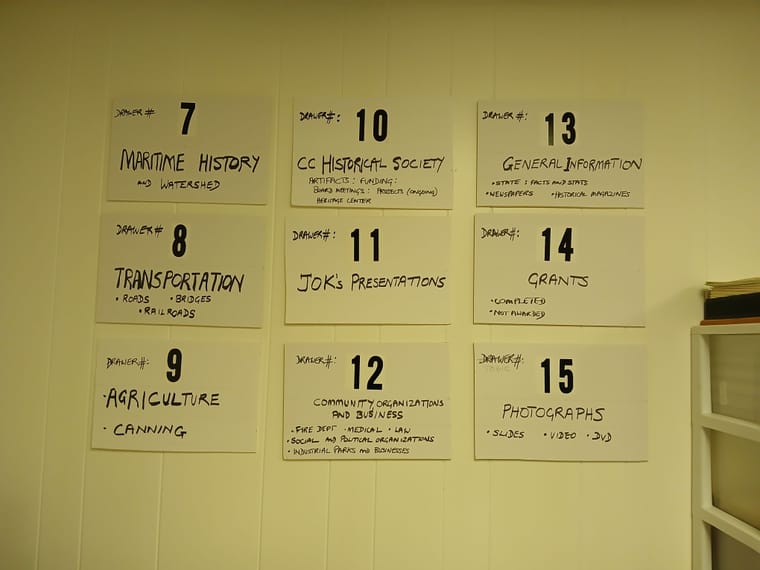 DRAWER # 7
MARITIME HISTORY
AND WATERSHED
DRAWER # 8
TRANSPORTATION
• ROADS • BRIDGES
• RAILROADS
DRAWER #: 9
• AGRICULTURE
• CANNING
DRAWER #: 10
CC HISTORICAL SOCIETY
ARTIFACTS : FUNDING :
BOARD MEETINGS : PROJECTS (ONGOING)
HERITAGE CENTER
DRAWER #: 11
JOK'S PRESENTATIONS
DRAWER #: 12
COMMUNITY ORGANIZATIONS
AND BUSINESS
• FIRE DEPT • MEDICAL • LAW
• SOCIAL AND POLITICAL ORGANIZATIONS
• INDUSTRIAL PARKS AND BUSINESSES
DRAWER #: 13
GENERAL INFORMATION
• STATE : FACTS AND STATS
• NEWSPAPERS • HISTORICAL MAGAZINES
DRAWER #: 14
GRANTS
• COMPLETED
• NOT AWARDED
DRAWER #: 15
PHOTOGRAPHS
• SLIDES • VIDEO • DVD